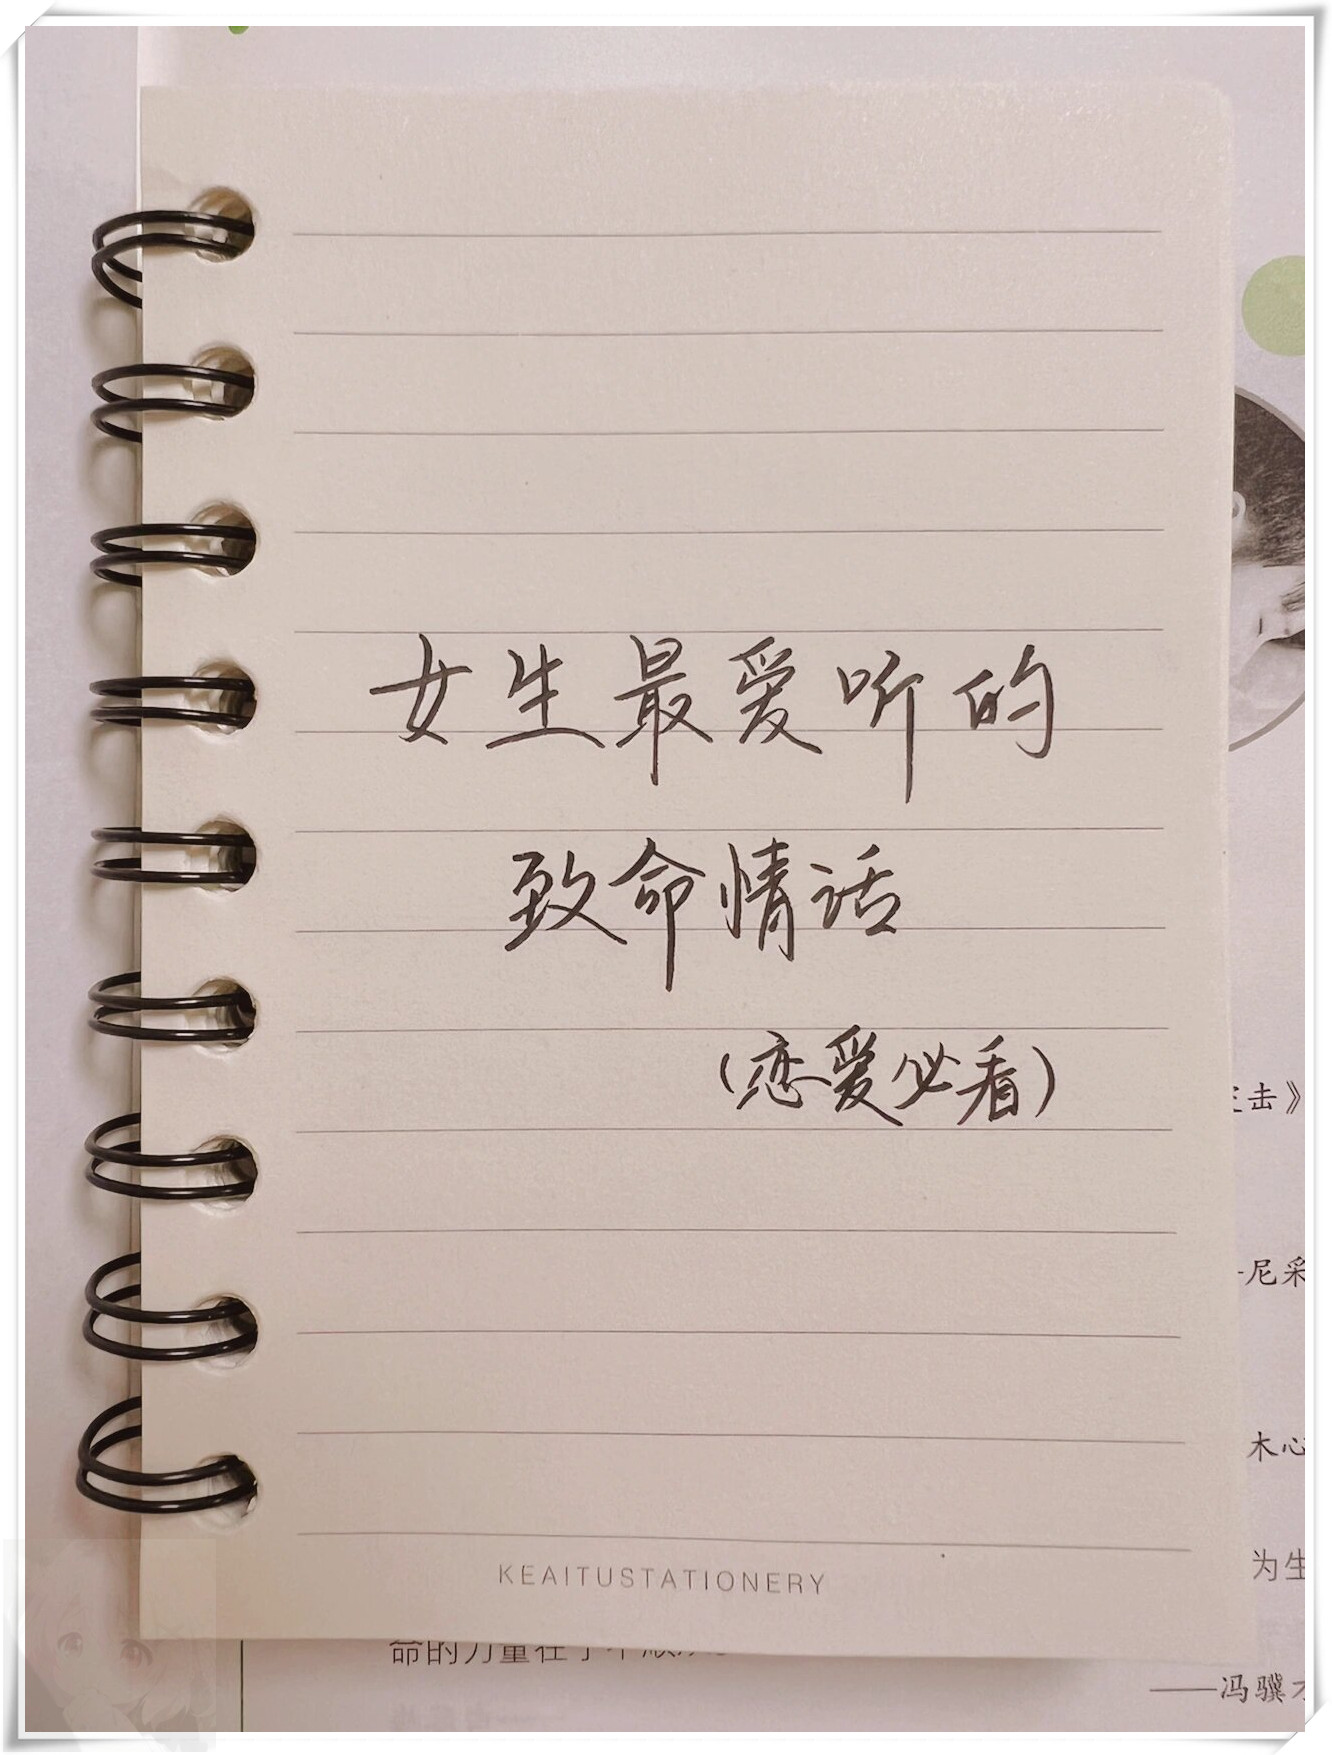 女生最爱听的
致命情话
(恋爱必看)
KEAITUSTATIONERY
击》
尼采
木心
为生
命的力量在于不顺从
——冯骥才